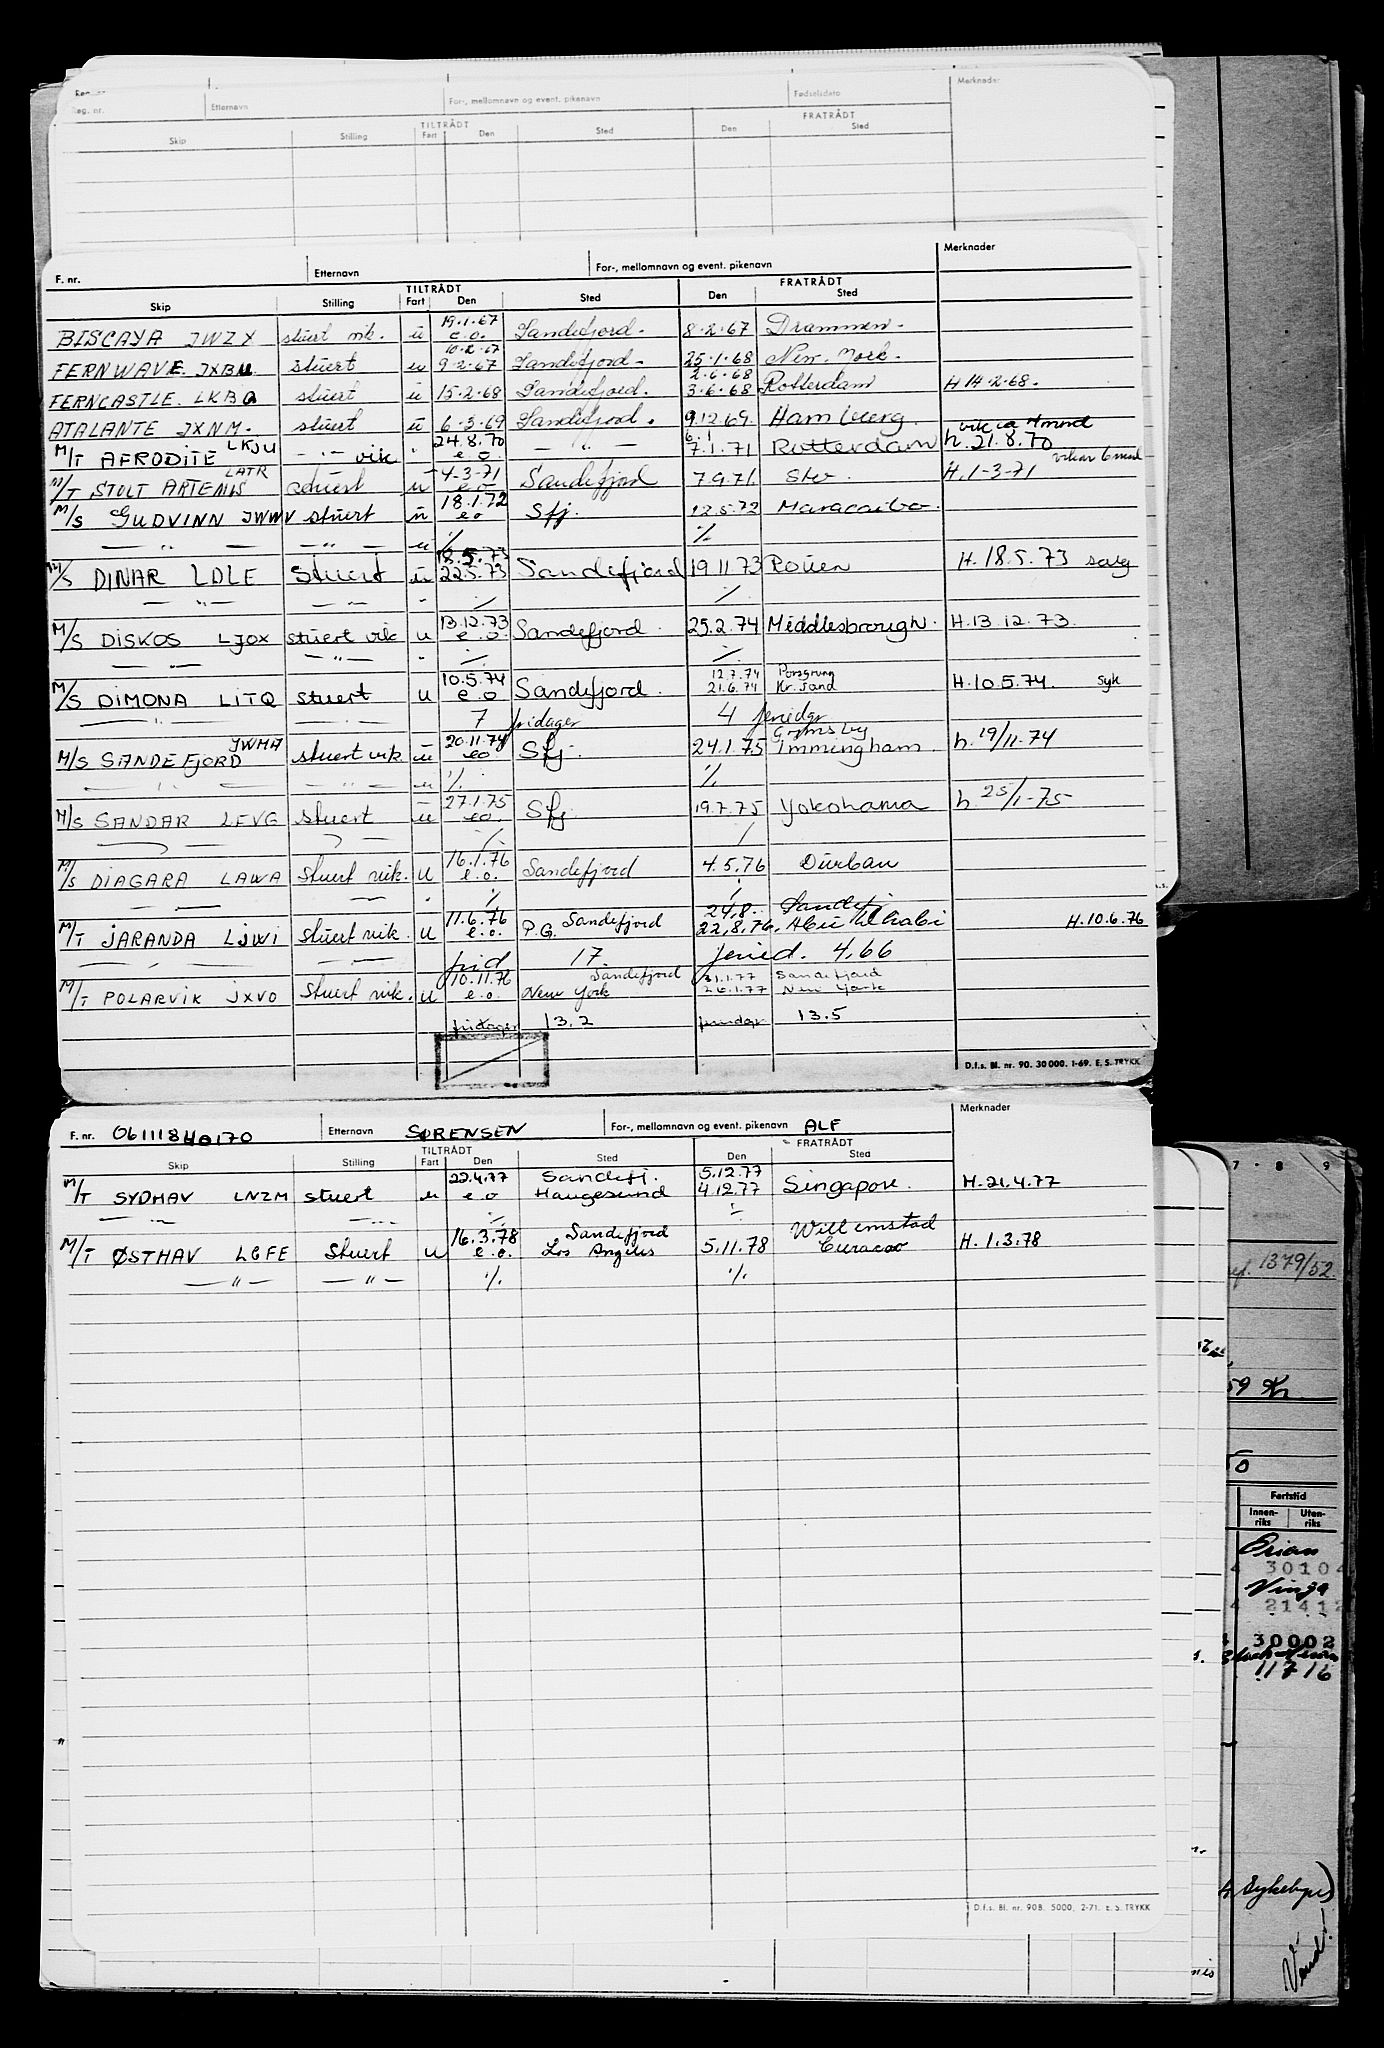 Merknader
Reg. nr. Etternavn For-, mellomnavn og event. pikenavn Fødselsdato
TILTRÅDT FRATRÅDT
Skip Stilling Fart Den Sted Den Sted
F. nr. Etternavn For-, mellomnavn og event. pikenavn Merknader
TILTRÅDT FRATRÅDT
Skip Stilling Fart Den Sted Den Sted
19.1.67
BISCAYA JWZX stuert vik. u e.o. Sandefjord. 8.2.67 Drammen.
10.2.67
FERNWAVE. JXBU stuert u 9.2.67 Sandefjord. 25.1.68 New York.
2.6.68
FERNCASTLE. LKBQ stuert u 15.2.68 Sandefjord. 3.6.68 Rotterdam H 14.2.68.
ATALANTE JXNM. stuert u 6.3.69 Sandefjord. 9.12.69. Hamburg.
LKJU 24.8.70 6.1 vik ca 4 mnd
M/T AFRODITE - " - vik " e o - " - 7.1.71 Rotterdam h. 21.8.70
LATR 4-3-71 vikar 6 mnd
M/T STOLT ARTEMIS stuert u eo Sandefjord 7.9.71. H. 1-3-71
18.1.72
M/S GUDVINN JWWV stuert u eo Sfj. 12.5.72 Maracaibo.
— " — — " — u ./. ./.
18.5.73
M/S DINAR LDLE Stuert u 22.5.73 Sandefjord 19.11.73 Rouen H. 18.5.73 salg
— " — — " — " ./. ./.
13.12.73
M/S DISKOS LJOX stuert vik u e.o. Sandefjord. 25.2.74 Middlesbrough. H. 13.12.73.
— " — — " — " ./. ./.
10.5.74 12.7.74 Porsgrunn
M/S DIMONA LITQ stuert u e.o Sandefjord. 21.6.74 Kr. Sand H. 10.5.74. syk
— " — — " — 7 fridager 4 feriedgr
JWMA 20.11.74 Grimsby
M/S SANDEFJORD stuert vik u eo Sfj. 24.1.75 Immingham. h. 19/11-74
— " — — " — u ./. ./.
27.1.75
M/S SANDAR LEVG stuert u eo. Sfj. 19.7.75 Yokohama h. 25/1-75
— " — — " — ./. ./.
16.1.76
M/S DIAGARA LAWA Stuert vik. u e.o. Sandefjord 4.5.76 Durban
— " — — " — " ./. ./.
11.6.76 Sandefjord 24.8. Sandefj
M/T JARANDA LJWI Stuert vik. u e.o. P.G. 22.8.76. Abu Dhabi H. 10.6.76
— " — — " — frid 17. feried. 4.66
10.11.76 Sandefjord 31.1.77 Sandefjord
M/T POLARVIK JXVO Stuert vik. u e.o. New York 26.1.77 New York
fridager 13.2 feriedgr 13.5
D.f.s. Bl. nr. 90. 30 000. 1-69. E. S. TRYKK
F. nr. 061118 40170 Etternavn SØRENSEN For-, mellomnavn og event. pikenavn ALF Merknader
TILTRÅDT FRATRÅDT
Skip Stilling Fart Den Sted Den Sted
22.4.77 Sandefj. 5.12.77
M/T SYDHAV LNZM stuert u e o Haugesund 4.12.77 Singapore. H. 21.4.77
— " — — " — ./. ./.
16.3.78 Sandefjord Willemstad
M/T ØSTHAV LGFE Stuert u e.o. Los Angeles 5.11.78 Curacao H. 1.3.78
— " — — " — ./. ./.
D.f.s. Bl. nr. 90B. 5000. 2-71. E. S. TRYKK
7 - 8 9
ref. 1379/52.
59 Kr.
50
Fartstid
Innen-riks Uten-riks
Orion
30104
Vinga
21412
30002
11716
Vend!